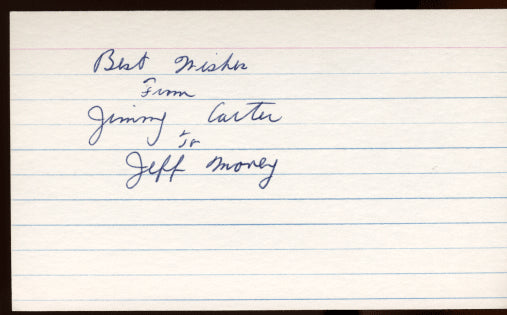 Best Wishes
From
Jimmy Carter
to
Jeff Morey